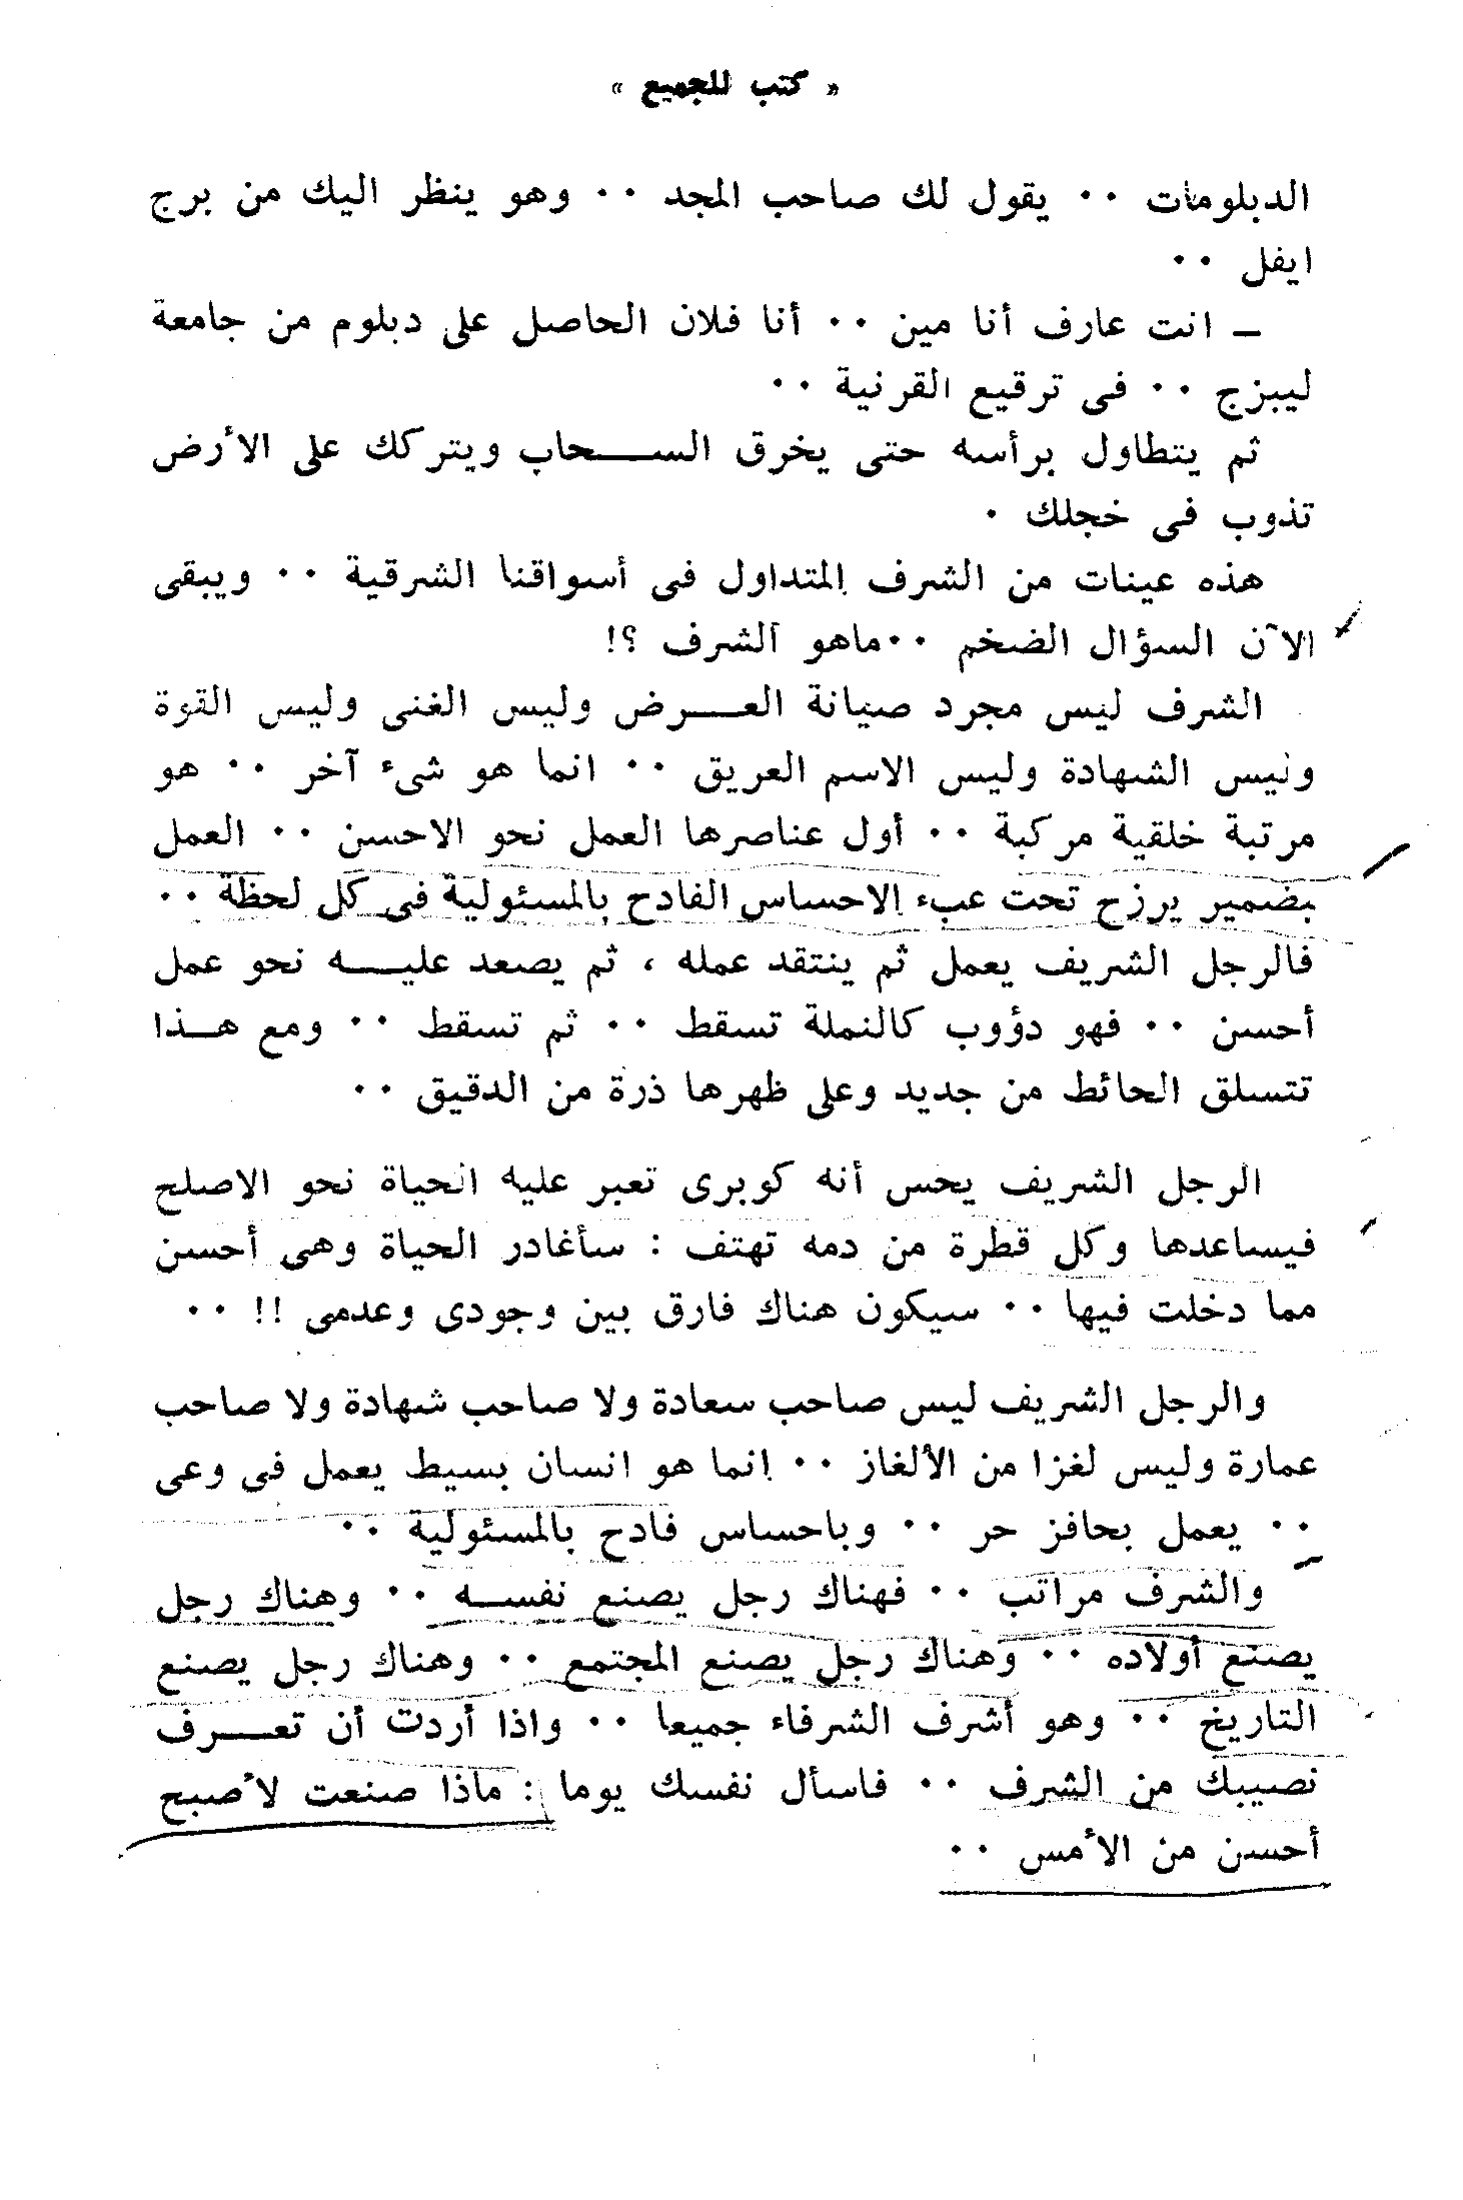 « كتب للجميع »
الدبلومات ٠٠ يقول لك صاحب المجد ٠٠ وهو ينظر اليك من برج
ايفل ٠٠
ـ انت عارف أنا مين ٠٠ أنا فلان الحاصل على دبلوم من جامعة
ليبزج ٠٠ فى ترقيع القرنية ٠٠
ثم يتطاول برأسه حتى يخرق الســـحاب ويتركك على الأرض
تذوب فى خجلك ٠
هذه عينات من الشرف المتداول فى أسواقنا الشرقية ٠٠ ويبقى
الآن السؤال الضخم ٠٠ماهو الشرف ؟!
الشرف ليس مجرد صيانة العـــرض وليس الغنى وليس القوة
وليس الشهادة وليس الاسم العريق ٠٠ انما هو شىء آخر ٠٠ هو
مرتبة خلقية مركبة ٠٠ أول عناصرها العمل نحو الاحسن ٠٠ العمل
بضمير يرزح تحت عبء الاحساس الفادح بالمسئولية فى كل لحظة ٠٠
فالرجل الشريف يعمل ثم ينتقد عمله ، ثم يصعد عليـــه نحو عمل
أحسن ٠٠ فهو دؤوب كالنملة تسقط ٠٠ ثم تسقط ٠٠ ومع هــذا
تتسلق الحائط من جديد وعلى ظهرها ذرة من الدقيق ٠٠
الرجل الشريف يحس أنه كوبرى تعبر عليه الحياة نحو الاصلح
فيساعدها وكل قطرة من دمه تهتف : سأغادر الحياة وهى أحسن
مما دخلت فيها ٠٠ سيكون هناك فارق بين وجودى وعدمى !! ٠٠
والرجل الشريف ليس صاحب سعادة ولا صاحب شهادة ولا صاحب
عمارة وليس لغزا من الألغاز ٠٠ انما هو انسان بسيط يعمل فى وعى
٠٠ يعمل بحافز حر ٠٠ وباحساس فادح بالمسئولية ٠٠
والشرف مراتب ٠٠ فهناك رجل يصنع نفســه ٠٠ وهناك رجل
يصنع أولاده ٠٠ وهناك رجل يصنع المجتمع ٠٠ وهناك رجل يصنع
التاريخ ٠٠ وهو أشرف الشرفاء جميعا ٠٠ واذا أردت أن تعـــرف
نصيبك من الشرف ٠٠ فاسأل نفسك يوما : ماذا صنعت لأصبح
أحسن من الأمس ٠٠